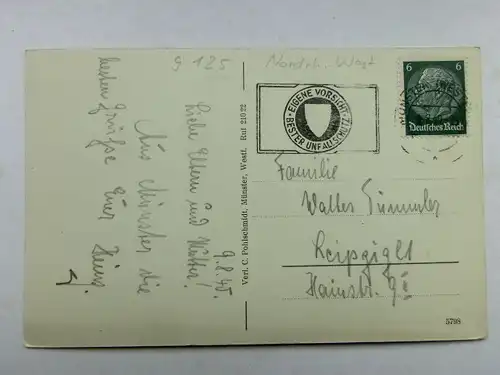 9 125
Nordrh. Westf
6 6
Deutsches Reich
MÜNSTER (WESTF)
EIGENE VORSICHT
BESTER UNFALLSCHUTZ
9.8.40.
Liebe Eltern und Mutter!
Aus Münster die
besten Grüße Euer
Heinz.
Verl. C. Pohlschmidt, Münster, Westf. Ruf 210 22
Familie
Walter Tümmler
Leipzig
Hainstr.
5798